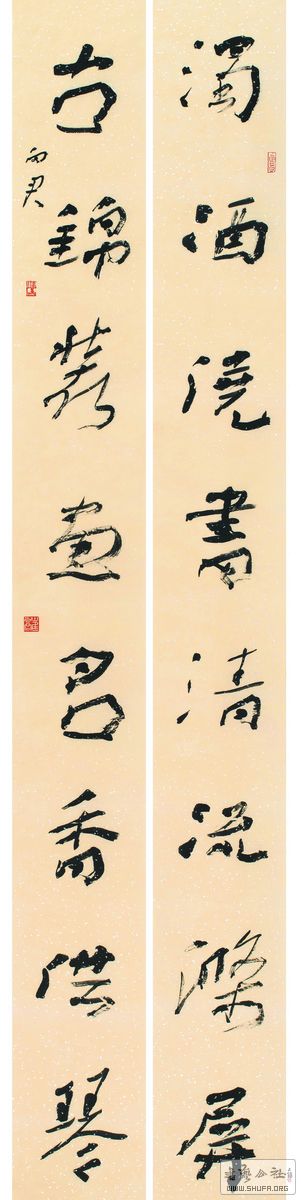 濁酒澆書清流滌屏
古錦裝畫名香供琴
書藝公社
WWW.SHUFA.ORG